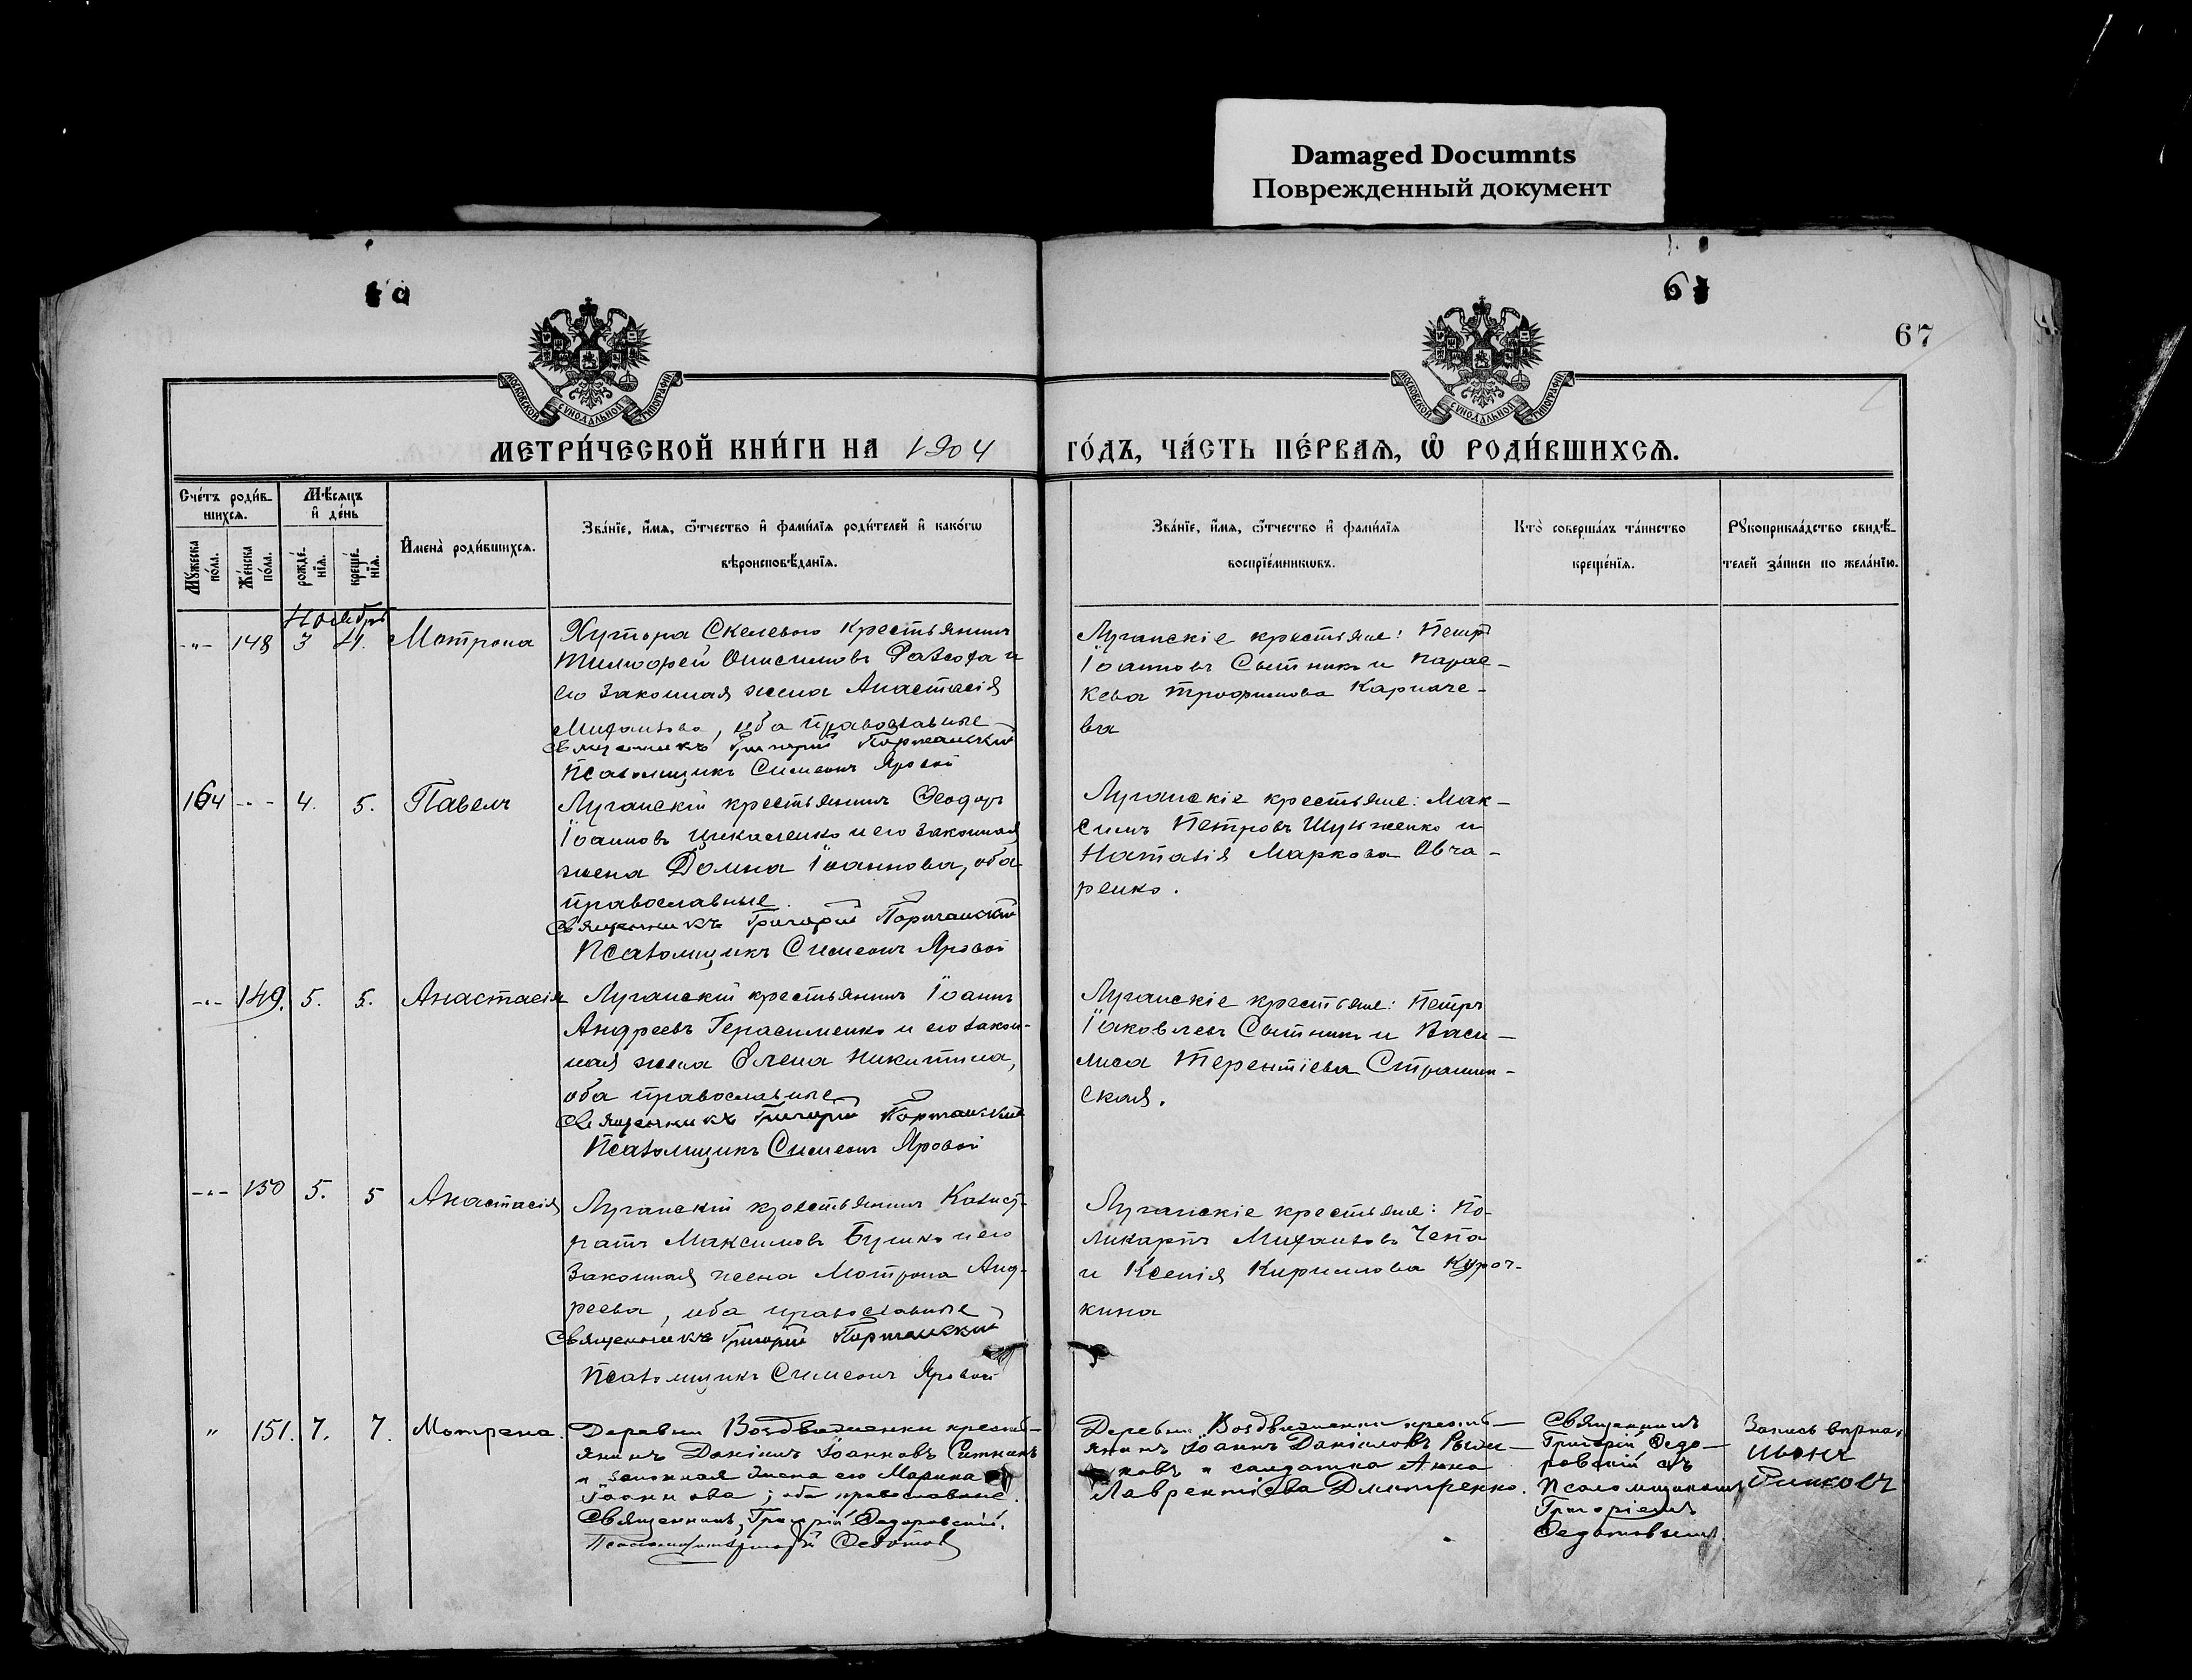 Damaged Documnts
Поврежденный документ
67
МОСКОВСКОЙ СѴНОДАЛЬНОЙ ТИПОГРАФІИ
МОСКОВСКОЙ СѴНОДАЛЬНОЙ ТИПОГРАФІИ
МЕТРИ́ЧЕСКОЙ КНИ́ГИ НА 1904 ГО́ДЪ, ЧА́СТЬ ПЕ́РВАѦ, Ѡ҆ РОДИ́ВШИХСѦ.
Сче́тъ роди́в-
шихсѧ.
Мѣ́сѧцъ
и҆ де́нь
И҆мена̀ роди́вшихсѧ.
Зва́нїе, и҆́мѧ, ѻ҆́тчество и҆ фами́лїѧ роди́телей и҆ како́гѡ
вѣроисповѣ́данїѧ.
Мꙋ́жеска по́ла.
Же́нска по́ла.
рожде́-нїѧ.
креще́-нїѧ.
Зва́нїе, и҆́мѧ, ѻ҆́тчество и҆ фами́лїѧ
воспрїе́мникѡвъ.
Кто̀ соверша́лъ та́инство
креще́нїѧ.
Рꙋкоприкла́дство свидѣ́-
телей за́писи по жела́нїю.
Ноябрь
-"- 148 3 4. Мотрона
Хутора Скелевого крестьянинъ
Онисимовъ и
его законная жена Анастасія
оба православные
Священникъ Григорій
Псаломщикъ Симеонъ Яровой
Луганскіе крестьяне: Петръ
Іоанновъ Сытникъ и Парас-
кева Трофимова Карпаче-
ва
164 -"- 4. 5. Павелъ
Луганскій крестьянинъ Ѳеодоръ
Іоанновъ и его законная
жена Домна Іоаннова, оба
православные.
Священникъ Григорій
Псаломщикъ Симеонъ Яровой
Луганскіе крестьяне: Мак-
симъ Петровъ и
Наталія Маркова Овча-
ренко.
-"- 149. 5. 5. Анастасія
Луганскій крестьянинъ Іоаннъ
Андреевъ Герасименко и его закон-
ная жена Елена Никитина,
оба православные
Священникъ Григорій
Псаломщикъ Симеонъ Яровой
Луганскіе крестьяне: Петръ
Іаковлевъ Сытникъ и Васи-
лиса Терентіева Страшин-
ская.
-"- 150 5. 5 Анастасія
Луганскій крестьянинъ Калист-
ратъ Максимовъ и его
законная жена Мотрона Анд-
реева, оба православные
Священникъ Григорій
Псаломщикъ Симеонъ Яровой
Луганскіе крестьяне: По-
ликарпъ
и Ксенія Кирилова Куроч-
кина
" 151. 7. 7. Мотрона.
Деревни Воздвиженки кресть-
янинъ Даніилъ Іоанновъ Ситникъ
и законная жена его Марина
Іоаннова; оба православные.
Священникъ, Григорій Ѳедоровскій.
Псаломщикъ Григорій Ѳедотов
Деревни Воздвиженки кресть-
янинъ Іоаннъ Даніиловъ
и солдатка Анна
Лаврентіева Дмитренко.
Священникъ
Григорій Ѳедо-
ровскій съ
Псаломщикомъ
Григоріемъ
Ѳедотовымъ.
Запись вѣрна.